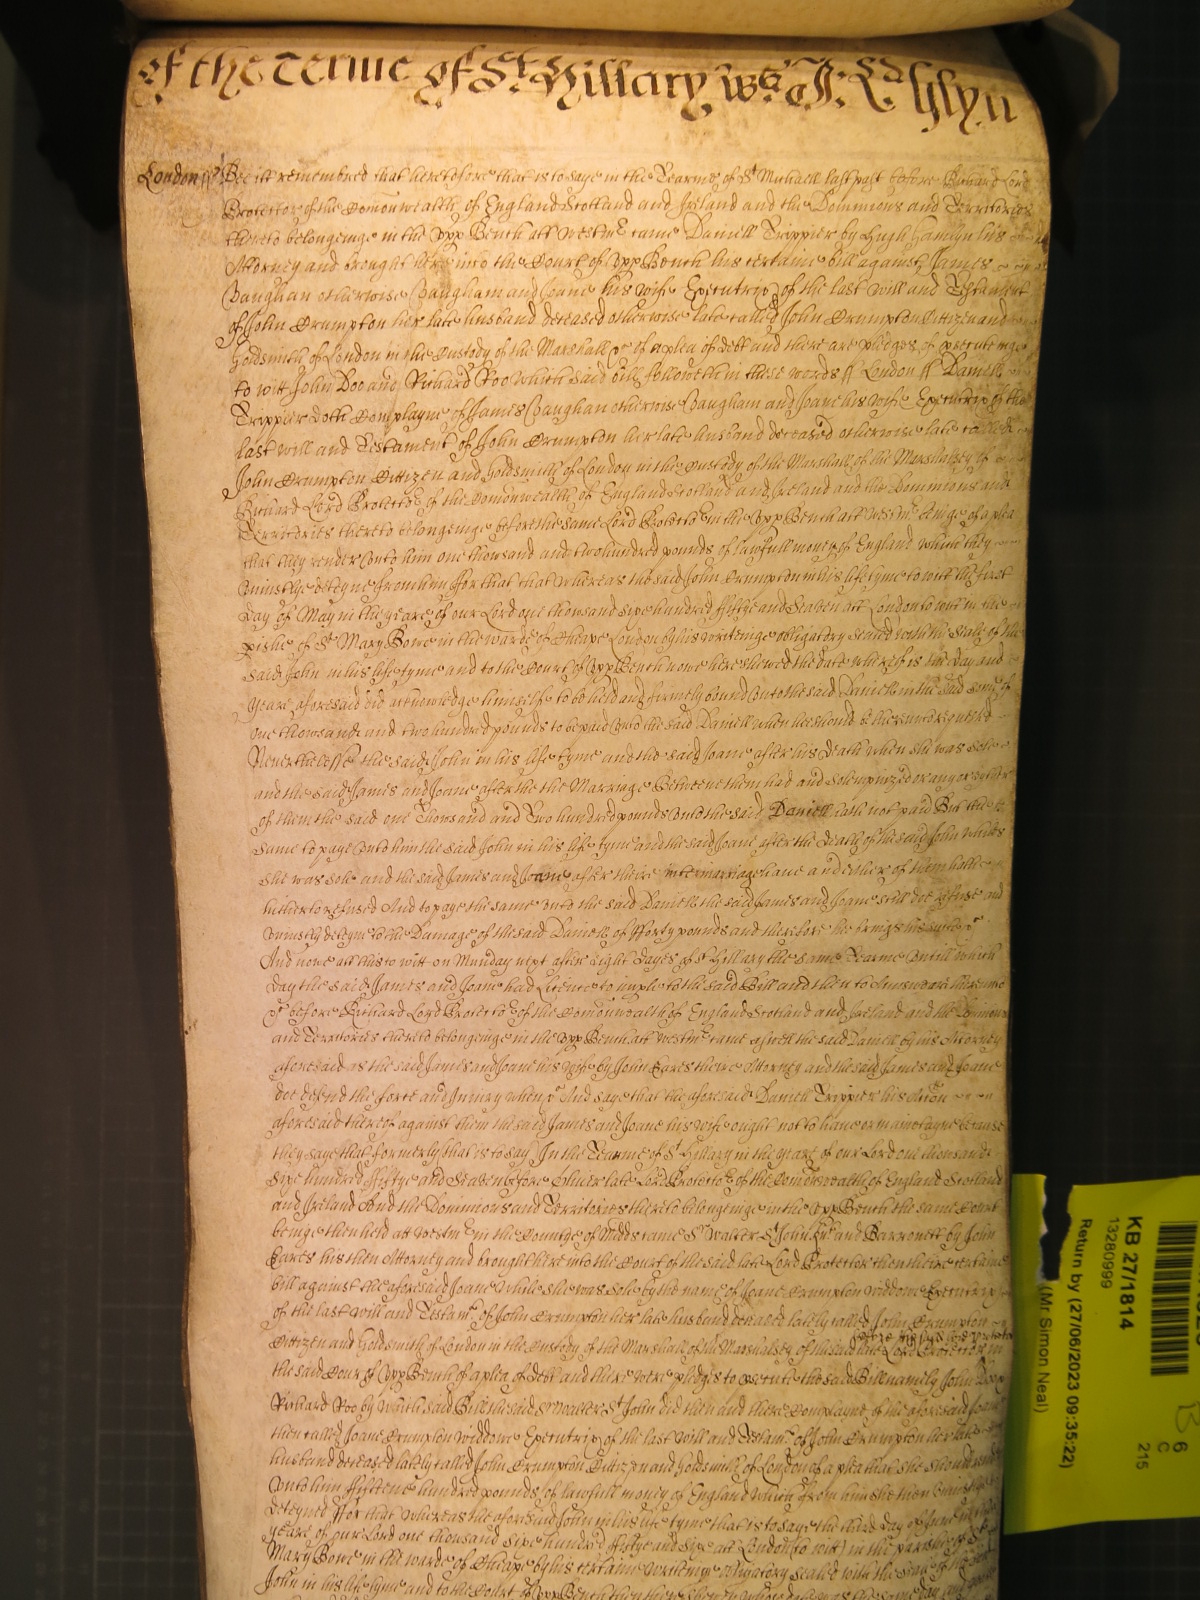 of the Terme of St Hillary wts
London ss Bee itt remembred that heretofore that is to saye in the Tearme of St Michaell last past before Richard Lord
Protector of the Comonwealth of England Scotland and Ireland and the Dominions and Territories
thereto belongeinge in the Upp Bench att Westmr came Daniell Trippier by Hugh Hamlyn his
Attorney and brought here into the Court of Upp Bench his certaine bill against James
Vaughan otherwise Vaugham and Joane his wife Executrix of the last will and Testament
of John Crumpton her late husband deceased otherwise late called John Crumpton Cittizen and
Goldsmith of London in the Custody of the Marshall &c of a plea of debt and there are pledges of prosecuteinge
to witt John Doo and Richard Roo which said bill followeth in these words ss London ss Daniell
Trippier doth Complayne of James Vaughan otherwise Vaugham and Joane his wife Executrix of the
last will and Testament of John Crumpton her late husband deceased otherwise late called
John Crumpton Cittizen and Goldsmith of London in the Custody of the Marshall of the Marshalsey of
Richard Lord Protector of the Comonwealth of England Scotland and Ireland and the Dominions and
Territories thereto belongeinge before the same Lord Protector in the Upp Bench att Westmr beinge of a plea
that they render unto him one thousand and two hundred pounds of lawfull money of England which they
uniustlye deteyne from him ffor that that whereas the said John Crumpton in his life tyme to witt the first
day of May in the yeare of our Lord one thousand sixe hundred fiftye and Seaven att London to witt in the
pishe of St Mary Bowe in the warde of Cheape London by his writeinge obligatory sealed with the Seale of the
said John in his life tyme and to the Court of Upp Bench nowe here shewed the date whereof is the day and
yeare aforesaid did acknowledge himselfe to be held and firmely bound unto the said Daniell in the said some of
one thowsand and two hundred pounds to be paid unto the said Daniell when hee should be thereunto required
Neverthelesse the said John in his life tyme and the said Joane after his death when she was sole
and the said James and Joane after the the Marriage Betweene them had and solempnized or any or either
of them the said one Thousand and Two hundred pounds unto the said Daniell hath not paid But the
same to paye unto him the said John in his life tyme and the said Joane after the death of the said John whiles
she was sole and the said James and Joane after theire intermarriage have and either of them hath
hitherto refused And to paye the same unto the said Daniell the said James and Joane still doe refuse and
uniustly deteyne to the Damage of the said Daniell of fforty pounds and therefore hee brings his suite &c
And nowe att this to witt on Munday next after Eight dayes of St Hillary the same Tearme Untill which
day the said James and Joane had Licence to imple to the said Bill and then to Answeare thereunto
&c before Richard Lord Protector of the Comonwealth of England Scotland and Ireland and the Dominions
and Territories thereto belongeinge in the Upp Bench att Westmr came aswell the said Daniell by his Attorney
aforesaid as the said James and Joane his wife by John Eares theire Attorney and the said James and Joane
doe defend the force and Iniury when &c And saye that the aforesaid Daniell Trippier his Accon
aforesaid thereof against them the said James and Joane his wife ought not to have or mainetayne because
they saye that formerly that is to say In the Tearme of St Hillary in the yeare of our Lord one thousand
sixe hundred fiftye and Seaven before Oliver late Lord Protector of the Comonwealth of England Scotland
and Ireland And the Dominions and Territories thereto belongeinge in the Upp Bench the same Court
beinge then held att Westmr in the Countye of Midds came Sr Walter St John Knt and Barronett by John
Eares his then Attorney and brought here into the Court of the said late Lord Protector then here certaine
bill against the aforesaid Joane while she was sole by the name of Joane Crumpton widdowe Executrix
of the last will and Testamt of John Crumpton her late husband deceased lately called John Crumpton
Cittizen and Goldsmith of London in the Custody of the Marshall of the Marshalsey of the said late Lord Protector in
the said Court of Upp Bench of a plea of debt and there were pledges to prosecute the said Bill namely John Doo
Richard Roo by which said Bill the said Sr Walter St John did then and there Complayne of the aforesaid Joane
then called Joane Crumpton widdowe Executrix of the last will and Testamt of John Crumpton her late
husband deceased lately called John Crumpton Cittizen and Goldsmith of London of a plea that she should render
unto him fifteene hundred pounds of lawfull money of England which from him she then uniustly
deteyned ffor that whereas the aforesaid John in his life tyme that is to saye the third day of June in the
yeare of our Lord one thousand sixe hundred fiftye and sixe att London (to witt) in the parish of St
Mary Bowe in the warde of Cheape by his certaine writeinge obligatory sealed with the seale of the said
John in his life tyme and to the Court of Upp Bench then there shewen whose date was the same day and
KB 27/1814
13280999
Return by (27/06/2023 09:35:22)
(Mr Simon Neal)
B
6
C
215